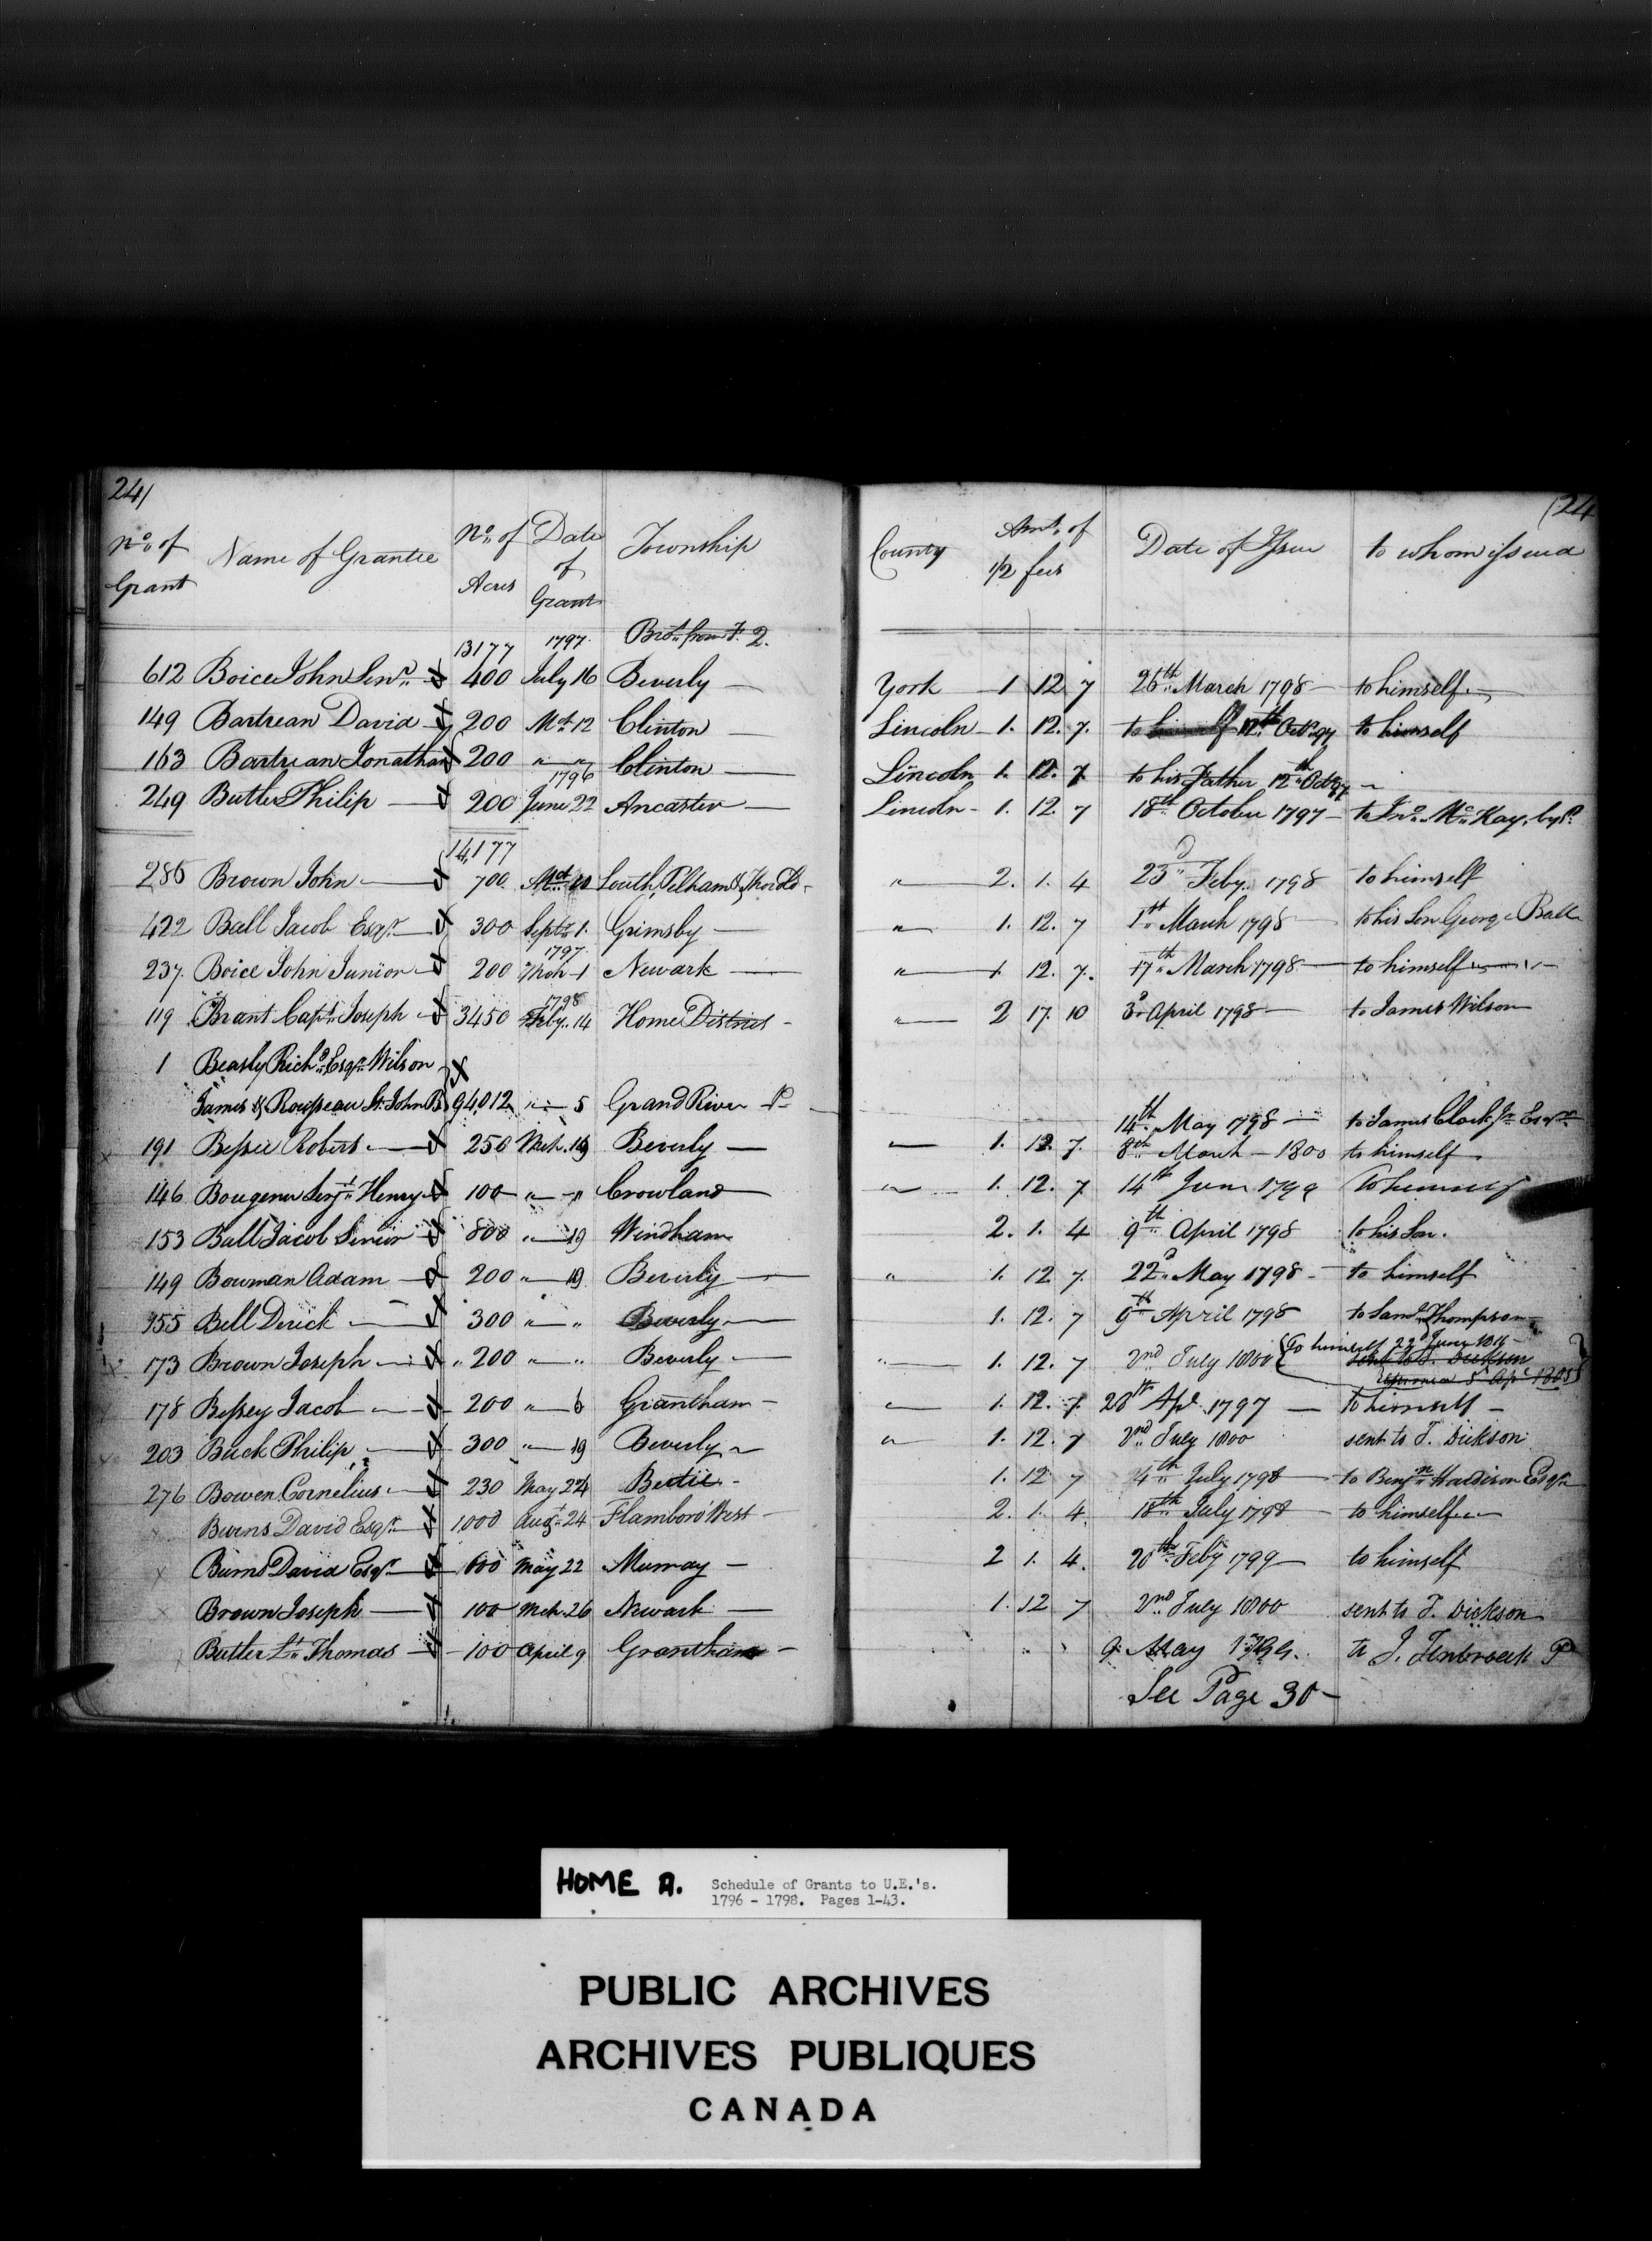 24/
(24
No. of Grant Name of Grantee No. of Acres Date of Grant Township County Amt. of 1/2 fees Date of Issue to whom issued
13177 1797 Brot. from F. 2.
612 Boice John Senr. 400 July 16 Beverly York 1 12 7 26th March 1798 to himself
149 Bartrean David 200 Oct 12 Clinton Lincoln 1. 12. 7. to 12th Oct 97 to himself
163 Bartrean Jonathan 200 " " Clinton Lincoln 1. 12. 7 to his Father 12th Oct 97
1796
249 Butler Philip 200 June 22 Ancaster Lincoln 1. 12. 7 18th October 1797 to Jno. McKay, by P.
14,177
286 Brown John 700 Oct 10 Louth, Pelham & Thorold " 2. 1. 4 23d Feby. 1798 to himself
422 Ball Jacob Esqr. 300 Septr. 1. Grimsby " 1. 12. 7 1st March 1798 to his Son George Ball
1797
237. Boice John Junior 200 Mch 1 Newark " 1 12. 7. 17th March 1798 to himself
1798
119 Brant Capt. Joseph 3450 Feby. 14 Home District " 2 17. 10 3d April 1798 to James Wilson
1 Beasly Richd. Esqr. Wilson
James & Rousseau St. John B 94,012 " 5 Grand River 14th May 1798 to James Clark Jr. Esqr.
191 Bessee Robert 250 Mch. 19 Beverly " 1. 12. 7. 8th March 1800 to himself
146 Bougener Serjt. Henry 100 " " Crowland " 1. 12. 7 14th June 1799 To himself
153 Ball Jacob Senior 800 " 19 Windham 2. 1. 4 9th April 1798 to his Son.
149 Bowman Adam 200 " 19 Beverly " 1. 12 7. 22d May 1798 to himself
155 Bell Derick 300 " " Beverly 1. 12. 7 9th April 1798 to Saml. Thompson
173 Brown Joseph 200 " " Beverly " 1. 12. 7 2nd July 1800 To himself 22d June
sent to T. Dickson
returned 5 Apl 1805
178 Bessey Jacob 200 " 6 Grantham " 1. 12. 7 28th Apl. 1797 To himself
203 Buck Philip 300 " 19 Beverly " 1. 12. 7 2nd July 1800 sent to T. Dickson
276 Bowen Cornelius 230 May 22 Bertie 1. 12 7 4th July 1798 to Benjn. Hardison Esqr.
Burns David Esqr. 1,000 Augt. 24 Flamboro' West 2. 1. 4. 18th July 1798 to himself
Burns David Esqr. 600 May 22 Murray 2 1. 4. 20th Feby 1799 to himself
Brown Joseph 100 Mch. 26 Newark 1. 12 7 2nd July 1800 sent to T. Dickson
Butler Lt. Thomas 100 April 9 Grantham " 9 May 1799. to J. Tenbroeck P
See Page 30
HOME A. Schedule of Grants to U.E.'s.
1796 - 1798. Pages 1-43.
PUBLIC ARCHIVES
ARCHIVES PUBLIQUES
CANADA